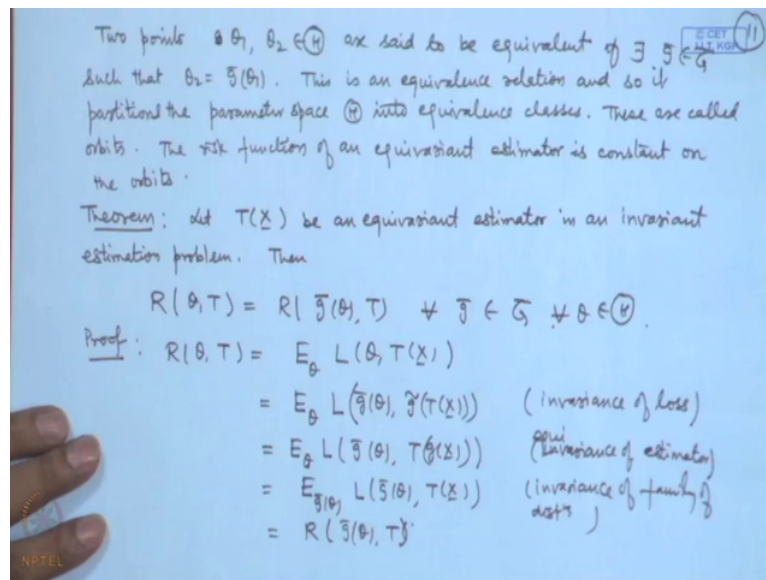 Two points θ₁, θ₂ ∈ Ⓗ are said to be equivalent of ∃ ḡ ∈ Ḡ
such that θ₂ = ḡ(θ₁). This is an equivalence relation and so it
partitions the parameter space Ⓗ into equivalence classes. These are called
orbits. The risk function of an equivariant estimator is constant on
the orbits.
Theorem: Let T(X) be an equivariant estimator in an invariant
estimation problem. Then
R(θ, T) = R(ḡ(θ), T) ∀ ḡ ∈ Ḡ, ∀ θ ∈ Ⓗ.
Proof: R(θ, T) = E_θ L(θ, T(X))
= E_θ L(ḡ(θ), g̃(T(X))) (invariance of loss)
= E_θ L(ḡ(θ), T(g(X))) (equivariance of estimator)
= E_ḡ(θ) L(ḡ(θ), T(X)) (invariance of family of
distns)
= R(ḡ(θ), T).
© CET
I.I.T. KGP
11
NPTEL